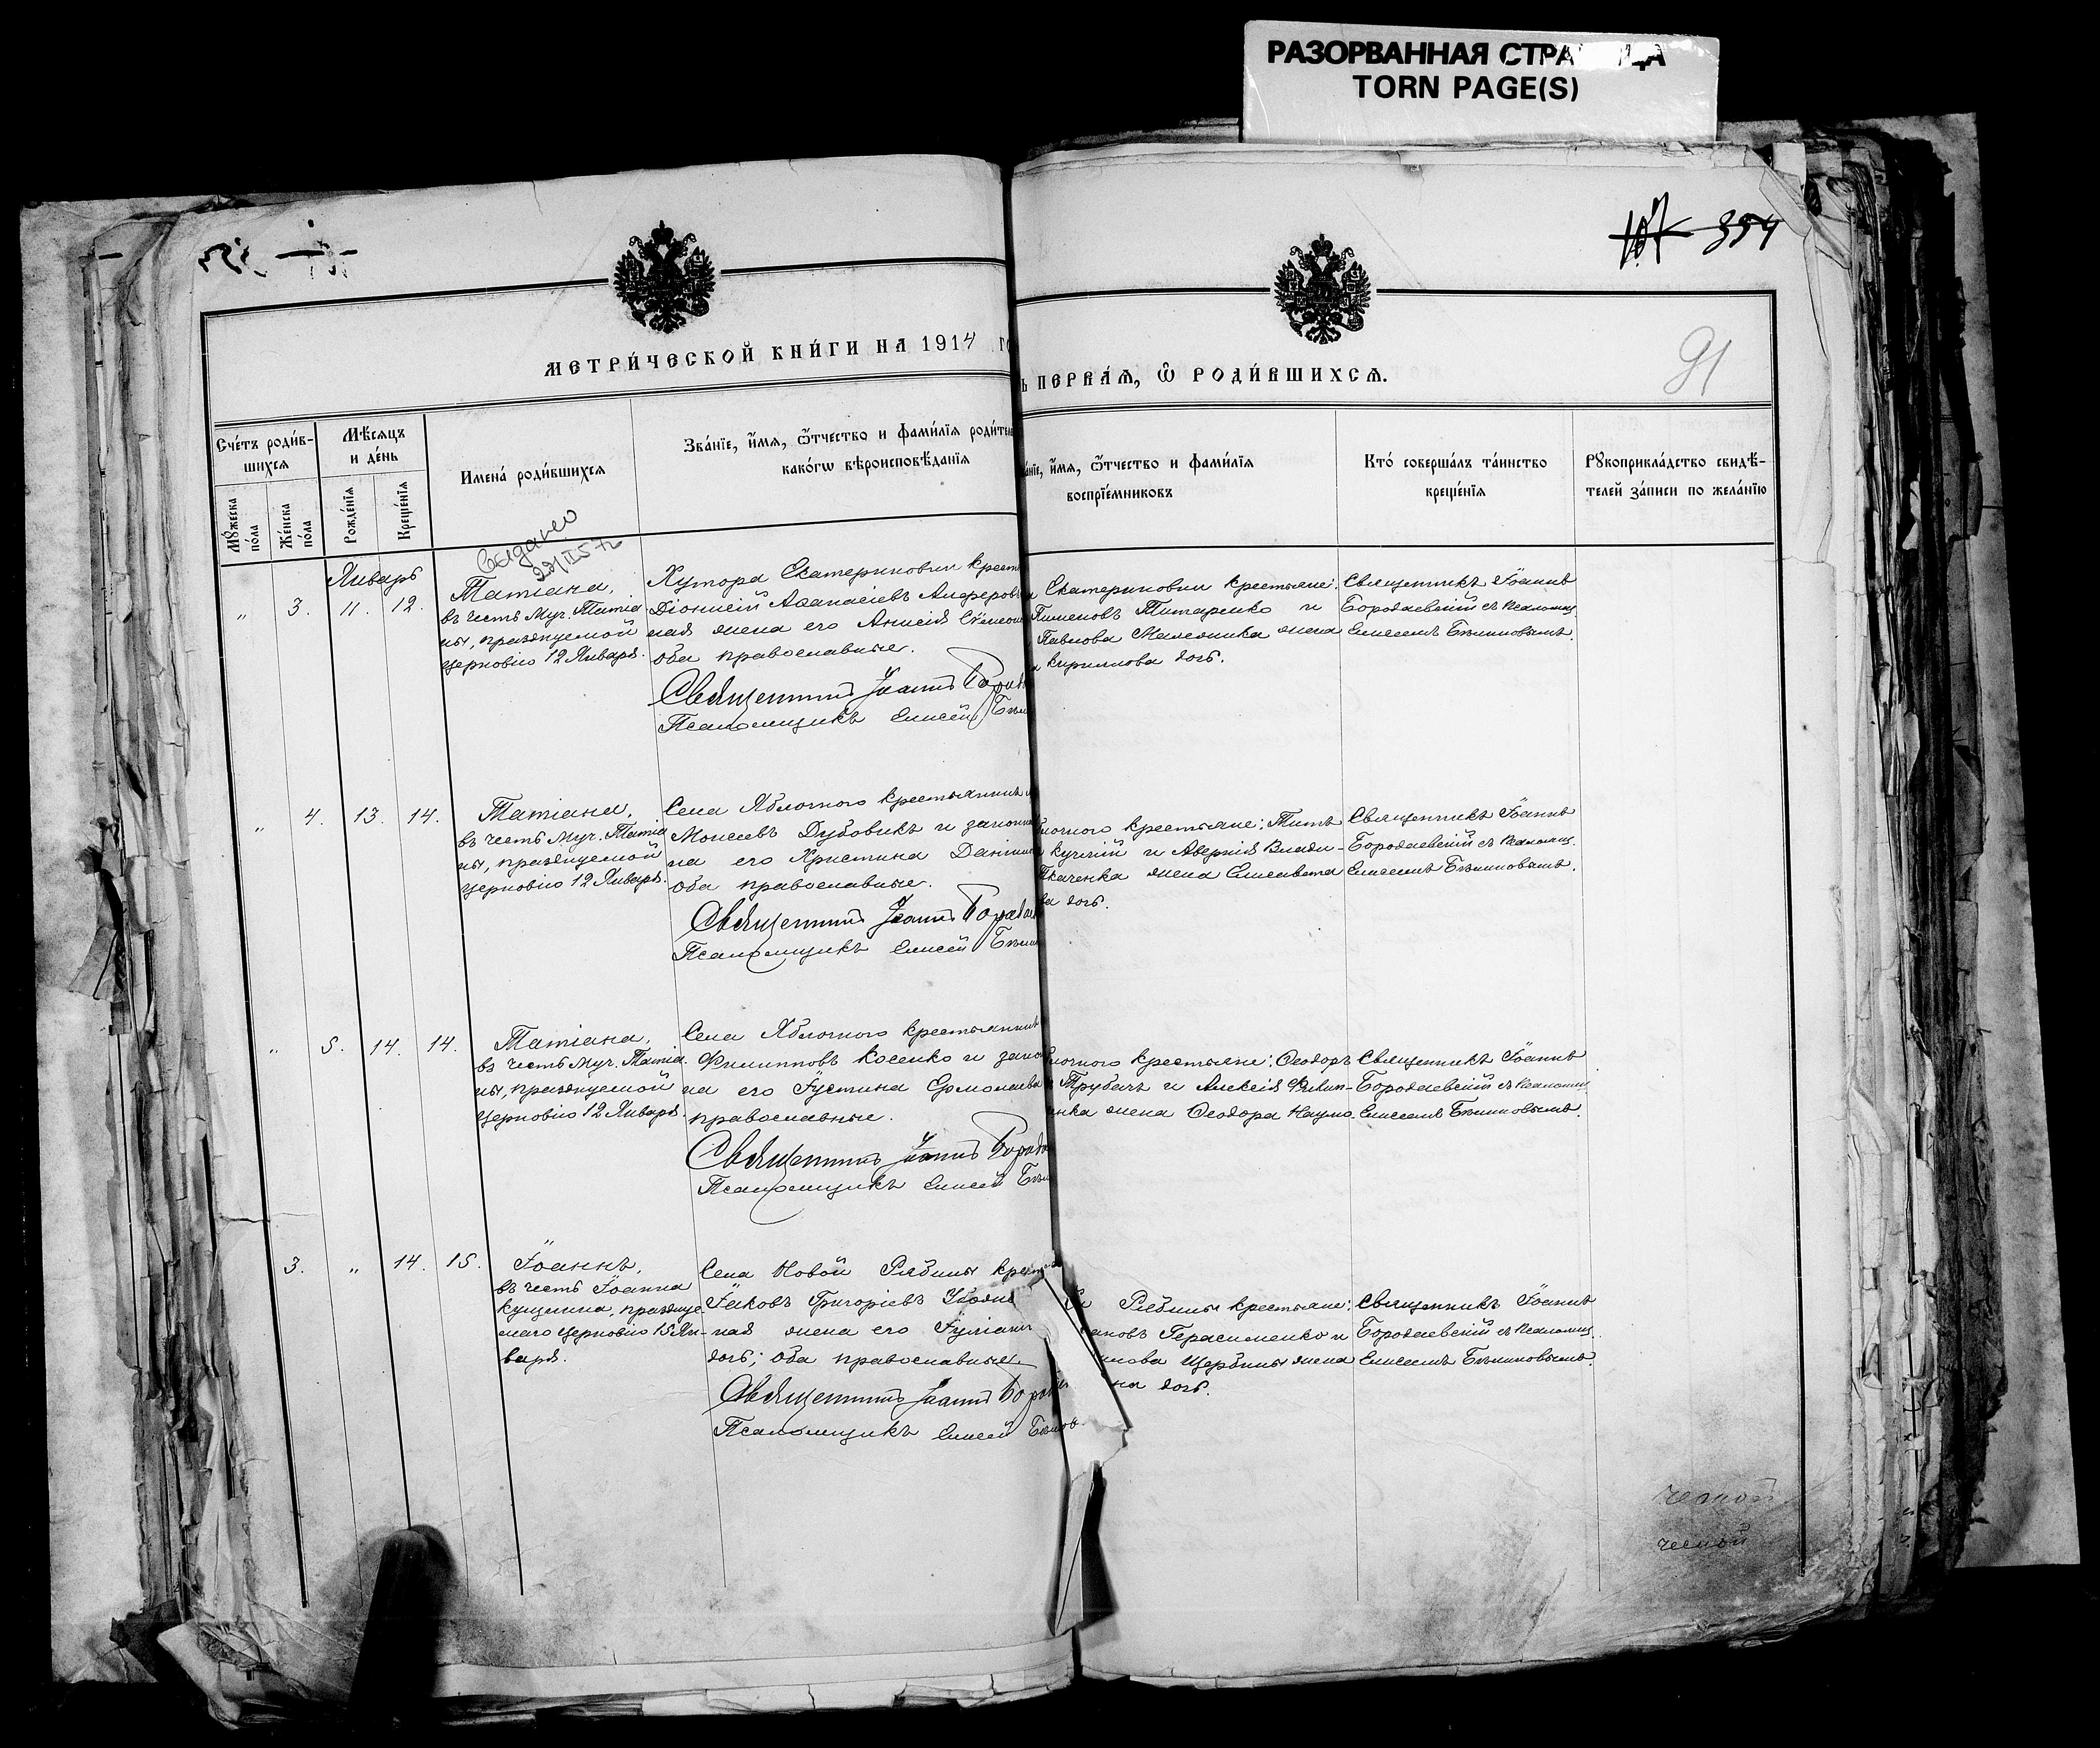 РАЗОРВАННАЯ СТРА ЦА
TORN PAGE(S)
354
91
МЕТРИ́ЧЕСКОЙ КНИ́ГИ НА 1914 ГО
Ь ПЕРВАѦ, Ѽ РОДИ́ВШИХСѦ.
Сче́тъ роди́в-
шихсѧ
Мꙋ́жеска
по́ла
Же́нска
по́ла
Мѣ́сѧцъ
и де́нь
Рожде́нїѧ
Креще́нїѧ
Имена̀ роди́вшихсѧ
Зва́нїе, и́мѧ, ѻ́тчество и фами́лїѧ роди́тел
како́гѡ вѣроисповѣ́данїѧ
а́нїе, и́мѧ, ѻ́тчество и фами́лїѧ
воспрїе́мниковъ
Кто̀ соверша́лъ та́инство
креще́нїѧ
Рꙋкоприкла́дство свидѣ́-
телей за́писи по жела́нїю
Выдано
Январь
„ 3. 11. 12.
Татіана,
въ честь Муч. Татіа
ны, празднуемой
церковію 12 Января.
Хутора Екатериновки крест
Діонисій Аѳанасіевъ Анфёров
ная жена его Анисія Сѵмеон
оба православные.
Священникъ Іоаннъ Борода
Псаломщикъ Елисей Бѣли
Екатериновки крестьяне:
Пименовъ Титаренко и
Павлова жена
Кириллова дочь.
Священникъ Іоаннъ
Бородаевскій съ Псаломщ.
Елисеемъ Бѣлиновымъ.
„ 4. 13. 14.
Татіана,
въ честь Муч. Татіа
ны, празднуемой
церковію 12 Января.
Села Яблочного крестьянинъ
Моисеевъ Дубовикъ и законн
на его Христина Даніил
оба православные.
Священникъ Іоаннъ Бородае
Псаломщикъ Елисей Бѣли
лочного крестьяне: Титъ
и Влади-
Ткаченка жена Елисавета
ва дочь.
Священникъ Іоаннъ
Бородаевскій съ Псаломщ.
Елисеемъ Бѣлиновымъ.
„ 5. 14. 14.
Татіана,
въ честь Муч. Татіа
ны, празднуемой
церковію 12 Января.
Села Яблочного крестьянинъ
Филипповъ Косенко и зако
на его Іустина Ермолаева
православные.
Священникъ Іоаннъ Борода
Псаломщикъ Елисей Бѣли
лочного крестьяне: Ѳеодоръ
Трубачъ и
енка жена Ѳеодора Наумо.
Священникъ Іоаннъ
Бородаевскій съ Псаломщ.
Елисеемъ Бѣлиновымъ.
3. „ 14. 15.
Іоаннъ,
въ честь Іоанна
Кущника, праздңуе-
маго церковію 15 Ян-
варя.
Села Новой Рябины крест
Іаковъ Григоріевъ
ная жена его Іуліан
дочь; оба православные.
Священникъ Іоаннъ Борода
Псаломщикъ Елисей Бѣлинов
Рябины крестьяне:
ановъ Герасименко и
Щербины жена
на дочь.
Священникъ Іоаннъ
Бородаевскій съ Псаломщ.
Елисеемъ Бѣлиновымъ.